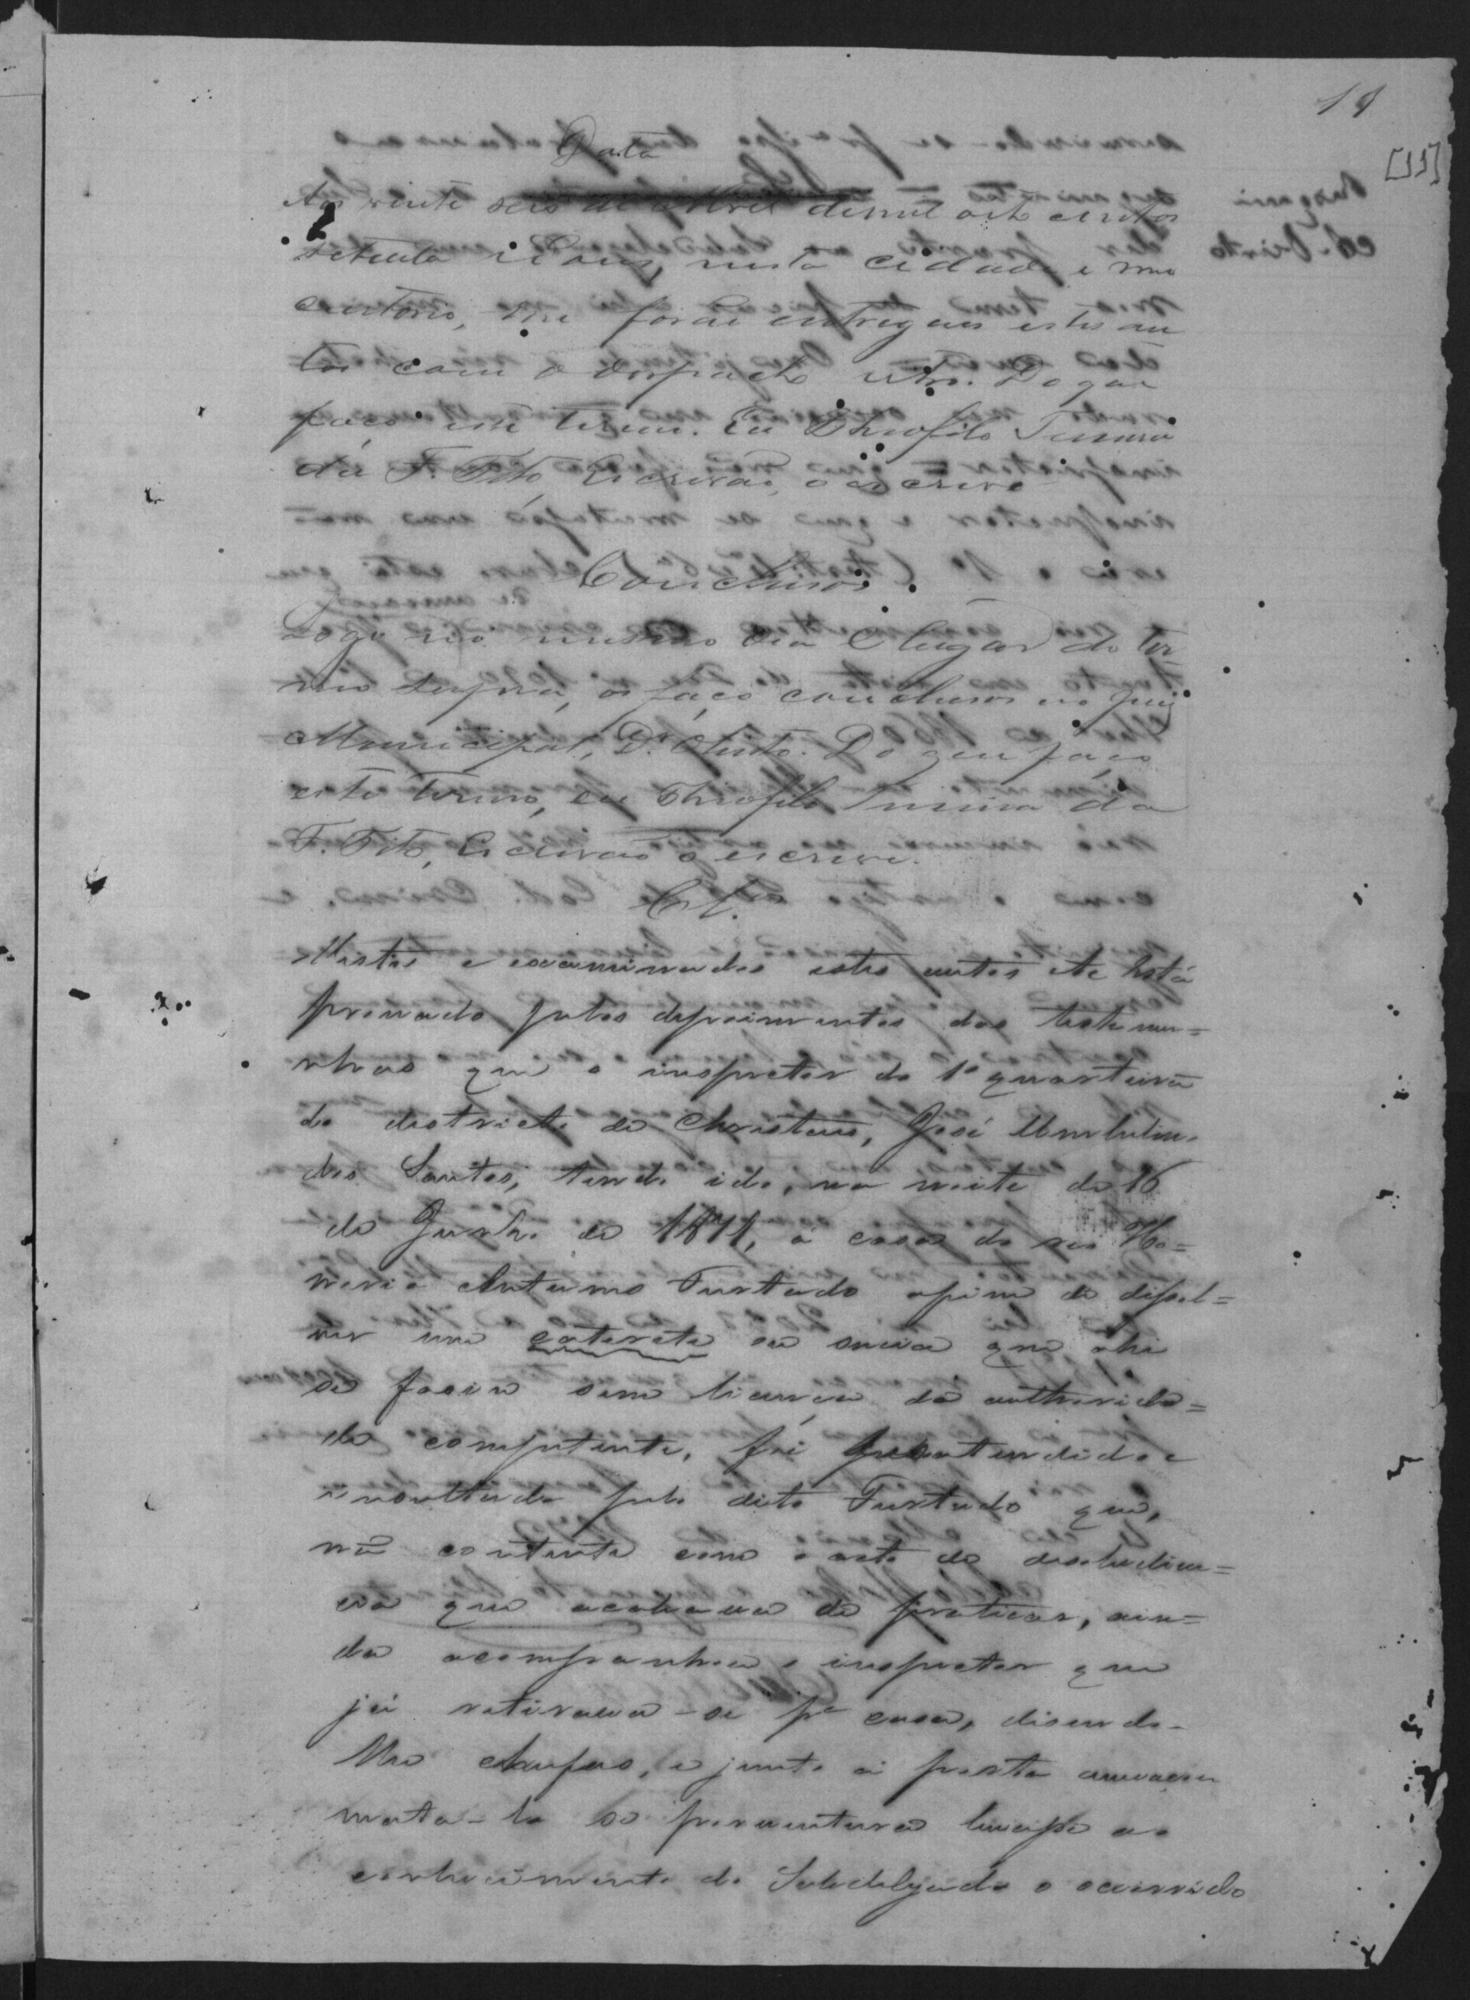 11
[11]
Data
Aos vinte seis de Abril demil oito centos
setenta e dous, nesta cidade e meo
cartorio, me forão entregues estes au
tos com o despacho retro. Do que
faço este termo. Eu Theofilo
da F. Tito, Escrivão, o escrevi
Conclusos
Logo no mesmo dia e lugar do ter
mo supra, os faço conclusos ao Juiz
Municipal, Dr. Do que faço
este termo, eu Theofilo da
F. Tito, Escrivão o escrevi.
Clos.
Vistos e examinados estes autos etc Está
provado pelos depoimentos das testemu=
nhas que o inspector do 1º quarteirão
do districto de Christaes, José
dos Santos, tendo ido, na noite de 16
de Junho de 1871, á casa do reo Ho=
norio Antunes Furtado afim de disper=
sar um cateretê ou sucia que ahi
se fasia sem licença da authorida=
de competente, foi desatendido e
insultado pelo dito Furtado que,
não contente com o acto de desobedien=
cia que acabava de praticar, ain=
da acompanhou o inspector que
já retirava-se pª casa, disendo-
lhe chufas, e junto á porta ameaçou
mata-lo se porventura levasse ao
conhecimento do Subdelegado o occorrido